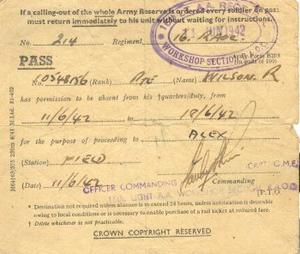 If a calling-out of the whole Army Reserve is ordered every soldier on pass
must return immediately to his unit without waiting for instructions.
No. 214 Regiment,
JUN 1942
WORKSHOP SECTION
PASS
(Rank) Pte (Name) WILSON. R
has permission to be absent from his *quarters/duty, from
11/6/42 to 18/6/42
for the purpose of proceeding to ALEX
(Station) FIELD
(Date) 11/6/42
Commanding
OFFICER COMMANDING
LIGHT A.A. WORKSHOP SECTION
* Destination not required unless absence is to exceed 24 hours, unless indication is desirable
owing to local conditions or is necessary to enable purchase of a rail ticket at reduced fare.
† Delete whichever is not practicable.
CROWN COPYRIGHT RESERVED